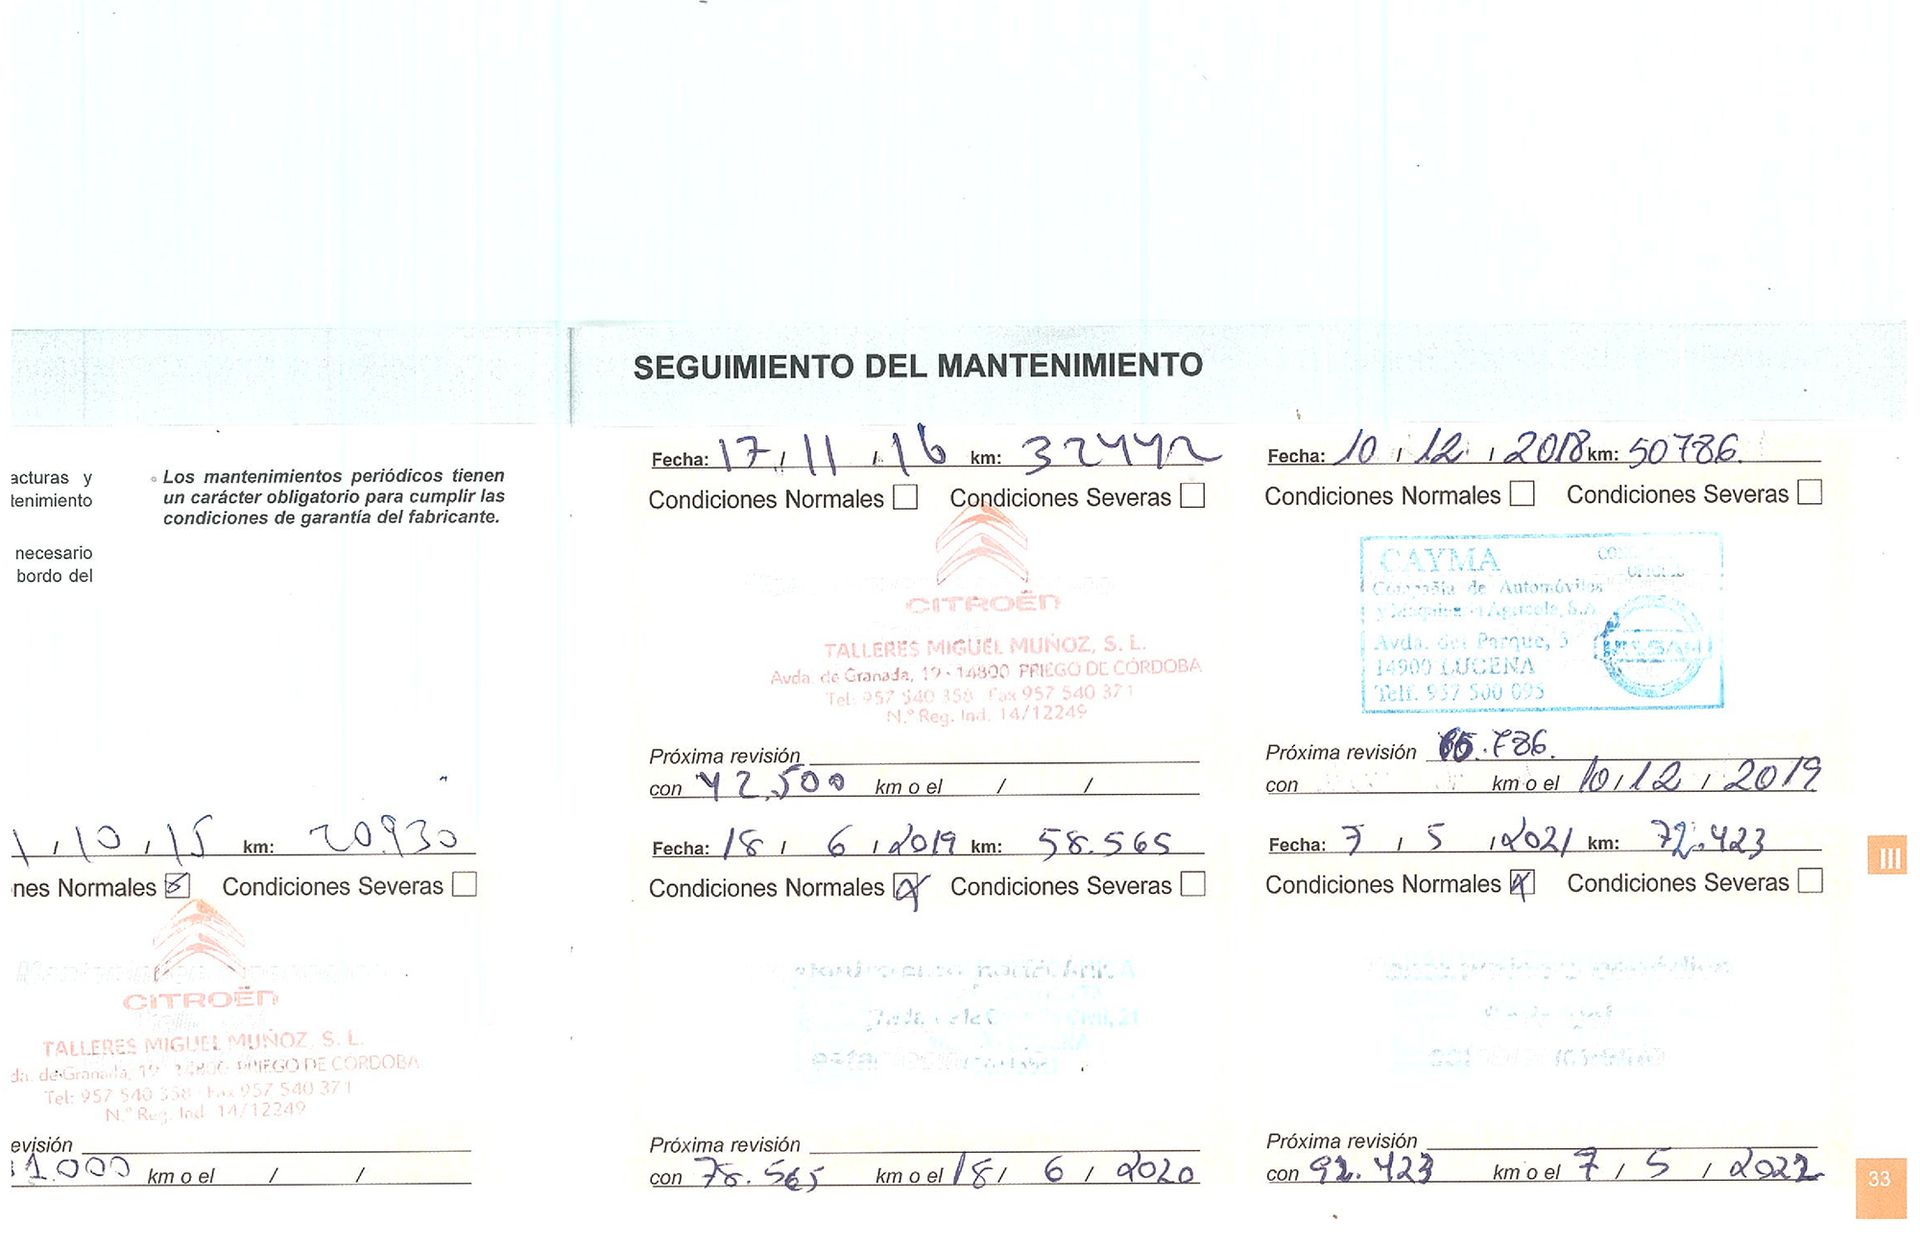 SEGUIMIENTO DEL MANTENIMIENTO
acturas y
tenimiento
necesario
bordo del
Los mantenimientos periódicos tienen
un carácter obligatorio para cumplir las
condiciones de garantía del fabricante.
/ 10 / 15 km: 20.930
nes Normales Condiciones Severas
CITROËN
TALLERES MIGUEL MUÑOZ, S. L.
da. de Granada, 19 - 14800 PRIEGO DE CÓRDOBA
Tel: 957 540 358 - Fax 957 540 371
N.º Reg. Ind. 14/12249
evisión
1.000 km o el / /
Fecha: 17 / 11 / 16 km: 32442
Condiciones Normales Condiciones Severas
CITROËN
TALLERES MIGUEL MUÑOZ, S. L.
Avda. de Granada, 19 - 14800 PRIEGO DE CÓRDOBA
Tel: 957 540 358 - Fax 957 540 371
N.º Reg. Ind. 14/12249
Próxima revisión
con 42.500 km o el / /
Fecha: 18 / 6 / 2019 km: 58.565
Condiciones Normales Condiciones Severas
Próxima revisión
con 78.565 km o el 18 / 6 / 2020
Fecha: 10 / 12 / 2018 km: 50786.
Condiciones Normales Condiciones Severas
CAYMA
Compañía de Automóviles
y Maquinaria Agrícola, S.A.
Avda. del Parque, 5
14900 LUCENA
Telf. 957 500 095
NISSAN
Próxima revisión 65.786.
con km o el 10 / 12 / 2019
Fecha: 7 / 5 / 2021 km: 72.423
Condiciones Normales Condiciones Severas
Próxima revisión
con 92.423 km o el 7 / 5 / 2022
III
33